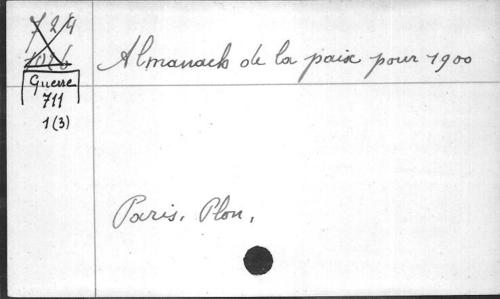 724
Almanach de la paix pour 1900
Guerre
711
1(3)
Paris. Plon.